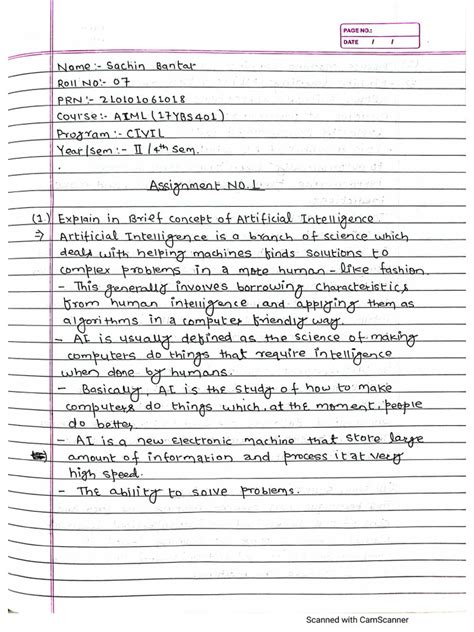 PAGE NO.:
DATE / /
Name:- Sachin Bantar
Roll No:- 07
PRN:- 210101061018
Course:- AIML (17YBS401)
Program:- CIVIL
Year/Sem:- II / 4th Sem.
Assignment NO.1.
(1.) Explain in Brief concept of Artificial Intelligence.
⇒ Artificial Intelligence is a branch of science which
deals with helping machines finds solutions to
complex problems in a more human-like fashion.
- This generally involves borrowing characteristics
from human intelligence, and applying them as
algorithms in a computer friendly way.
- AI is usually defined as the science of making
computers do things that require intelligence
when done by humans.
- Basically, AI is the study of how to make
computers do things which, at the moment, people
do better
- AI is a new electronic machine that store large
amount of information and process it at very
high speed.
- The ability to solve problems.
Scanned with CamScanner